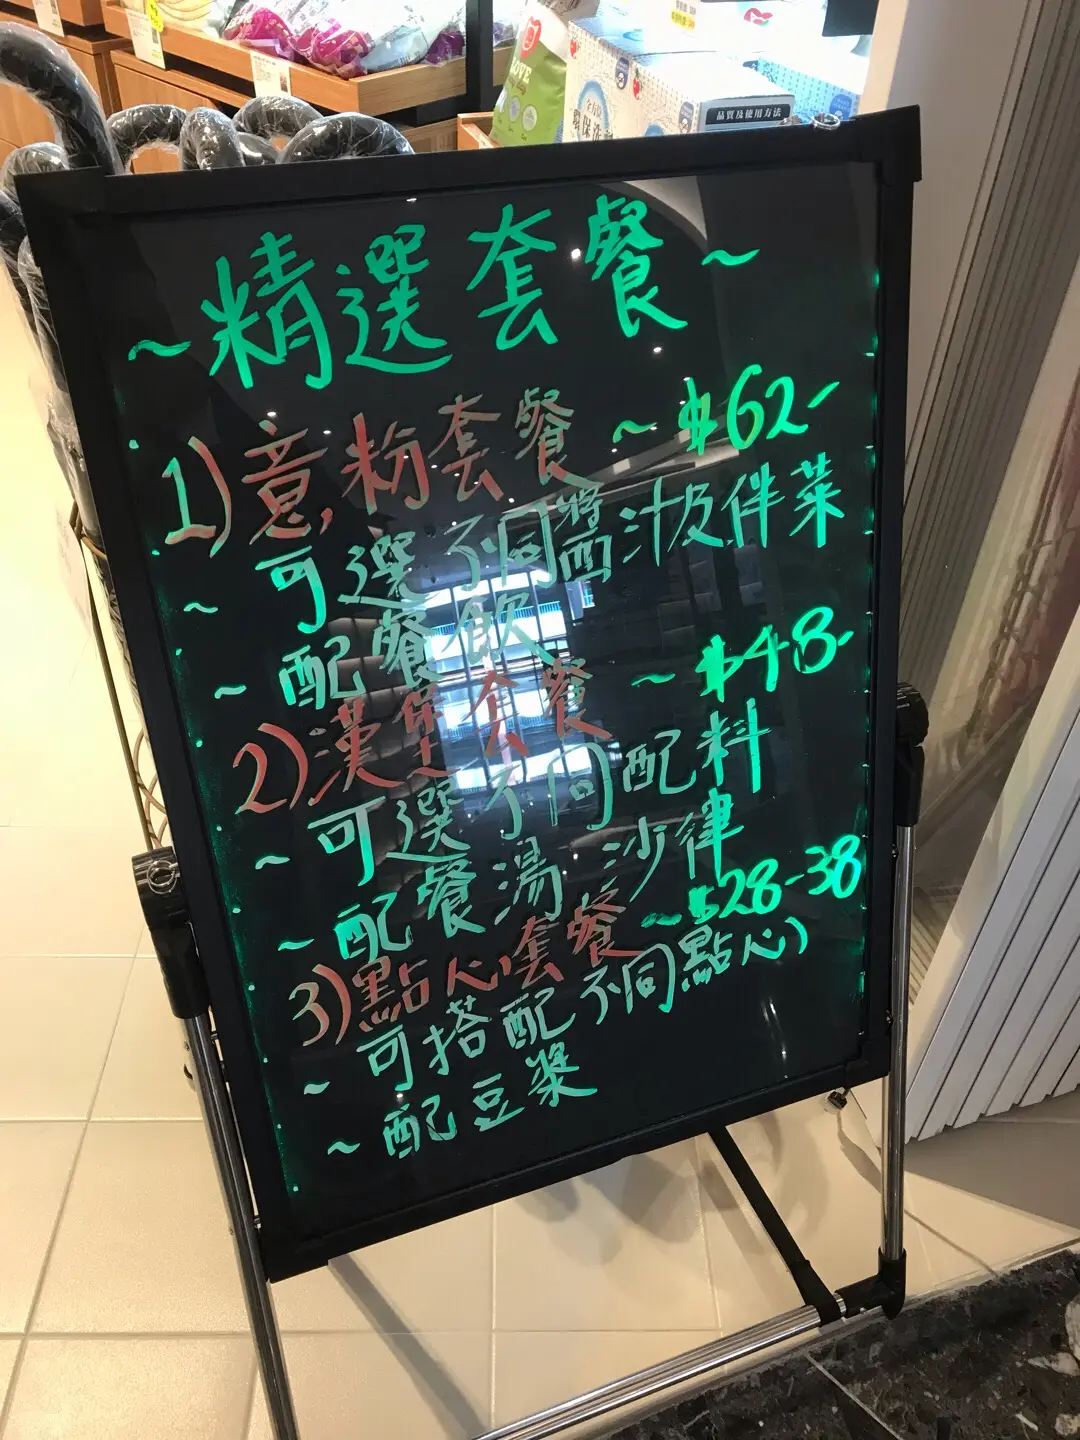 LOVE
品質及使用方法
~精選套餐~
1)意,粉套餐~$62-
~可選不同醬汁及伴菜
~配餐飲
2)漢堡套餐~$48-
~可選不同配料
~配餐湯沙律
3)點心套餐~$28-38
~可搭配不同點心)
~配豆漿